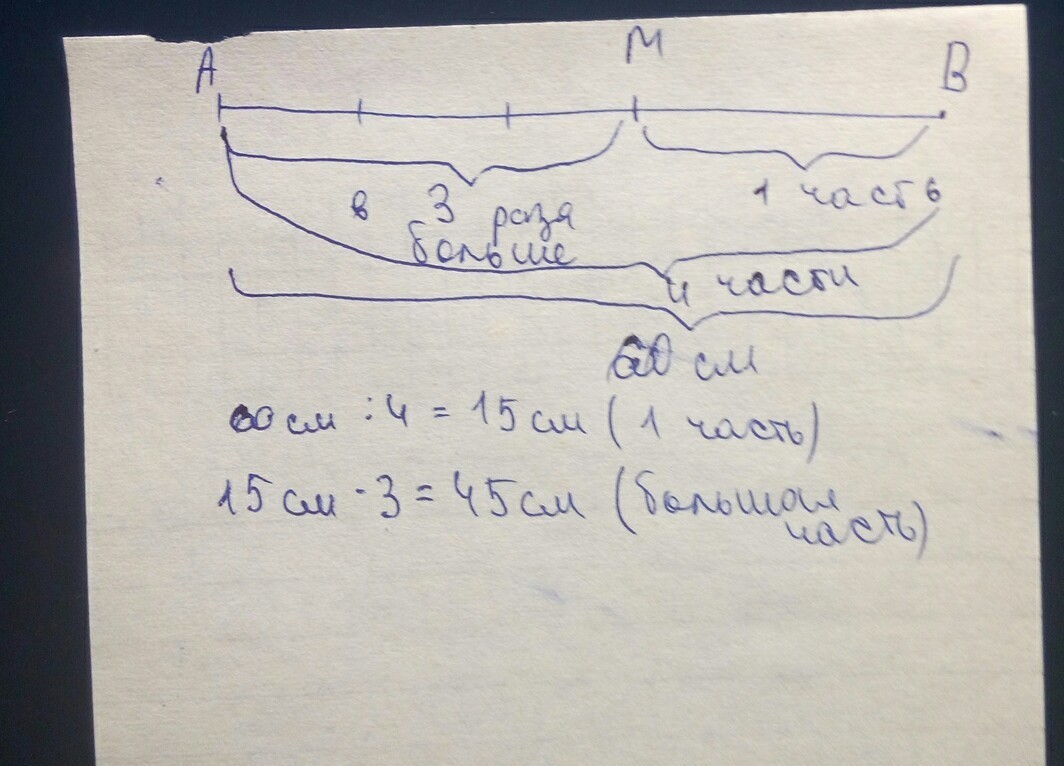 A M B
в 3 раза 1 часть
больше
4 части
60 см
60 см : 4 = 15 см ( 1 часть)
15 см · 3 = 45 см (большая
часть)